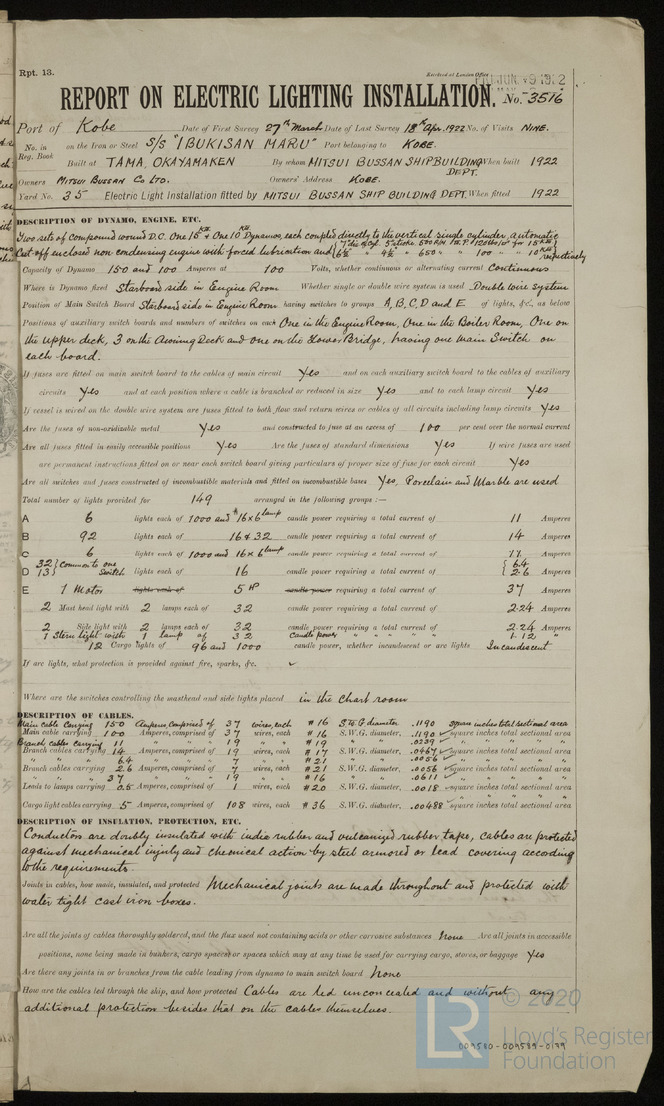 Rpt. 13.
Received at London Office
REPORT ON ELECTRIC LIGHTING INSTALLATION. No. 3516
Port of Kobe Date of First Survey 27th March Date of Last Survey 18th Apr. 1922 No. of Visits NINE.
No. in Reg. Book on the Iron or Steel S/S "IBUKISAN MARU" Port belonging to KOBE.
Built at TAMA, OKAYAMAKEN By whom MITSUI BUSSAN SHIPBUILDING DEPT. When built 1922
Owners MITSUI BUSSAN Co LTD. Owners' Address KOBE.
Yard No. 35 Electric Light Installation fitted by MITSUI BUSSAN SHIP BUILDING DEPT. When fitted 1922
DESCRIPTION OF DYNAMO, ENGINE, ETC.
Two sets of compound wound D.C. One 15 KW & One 10 KW Dynamos, each coupled directly to the vertical single cylinder, automatic
Cut off enclosed non condensing engine with forced lubrication and
respectively
Capacity of Dynamo 150 and 100 Amperes at 100 Volts, whether continuous or alternating current Continuous
Where is Dynamo fixed Starboard side in Engine Room Whether single or double wire system is used Double wire system
Position of Main Switch Board Starboard side in Engine Room having switches to groups A, B, C, D and E of lights, &c., as below
Positions of auxiliary switch boards and numbers of switches on each One in the Engine Room, One in the Boiler Room, One on
the upper deck, 3 on the Awning Deck and one on the Lower Bridge, having one main Switch on
each board.
If fuses are fitted on main switch board to the cables of main circuit Yes and on each auxiliary switch board to the cables of auxiliary
circuits Yes and at each position where a cable is branched or reduced in size Yes and to each lamp circuit Yes
If vessel is wired on the double wire system are fuses fitted to both flow and return wires or cables of all circuits including lamp circuits Yes
Are the fuses of non-oxidizable metal Yes and constructed to fuse at an excess of 100 per cent over the normal current
Are all fuses fitted in easily accessible positions Yes Are the fuses of standard dimensions Yes If wire fuses are used
are permanent instructions fitted on or near each switch board giving particulars of proper size of fuse for each circuit Yes
Are all switches and fuses constructed of incombustible materials and fitted on incombustible bases Yes, Porcelain and Marble are used
Total number of lights provided for 149 arranged in the following groups :—
A 6 lights each of 1000 and 16 x 6 lamp candle power requiring a total current of 11 Amperes
B 92 lights each of 16 & 32 candle power requiring a total current of 14 Amperes
C 6 lights each of 1000 and 16 x 6 lamp candle power requiring a total current of 11 Amperes
D 32 } Common to one 13 } Switch lights each of 16 candle power requiring a total current of { 6.4 { 2.6 Amperes
E 1 Motor lights each of 5 HP candle power requiring a total current of 37 Amperes
2 Mast head light with 2 lamps each of 32 candle power requiring a total current of 2.24 Amperes
2 Side light with 2 lamps each of 32 candle power requiring a total current of 2.24 Amperes
1 Stern light with 1 lamp of 32 Candle power " " " " " 1.12 "
12 Cargo lights of 96 and 1000 candle power, whether incandescent or arc lights Incandescent
If arc lights, what protection is provided against fire, sparks, &c.
Where are the switches controlling the masthead and side lights placed in the Chart room
DESCRIPTION OF CABLES.
Main cable Carrying 150 Amperes, Comprised of 37 wires, each #16 S.W.G. diameter .1190 square inches total sectional area
Main cable carrying 100 Amperes, comprised of 37 wires, each #16 S.W.G. diameter, .1190 square inches total sectional area
Branch cables carrying 11 " " 19 " " #19 .0239 " "
Branch cables carrying 14 Amperes, comprised of 19 wires, each #17 S.W.G. diameter, .0467 square inches total sectional area
" " " 6.4 " " 7 " " #21 .0056 " "
Branch cables carrying 2.6 Amperes, comprised of 7 wires, each #21 S.W.G. diameter, .0056 square inches total sectional area
" " " 37 " " 19 " " #16 .0611 " "
Leads to lamps carrying 0.5 Amperes, comprised of 1 wires, each #20 S.W.G. diameter, .0018 square inches total sectional area
Cargo light cables carrying 5 Amperes, comprised of 108 wires, each #36 S.W.G. diameter, .00488 square inches total sectional area
DESCRIPTION OF INSULATION, PROTECTION, ETC.
Conductors are doubly insulated with india rubber and vulcanized rubber tape, cables are protected
against mechanical injury and chemical action by steel armored or lead covering according
to the requirements.
Joints in cables, how made, insulated, and protected Mechanical joints are made throughout and protected with
water tight cast iron boxes.
Are all the joints of cables thoroughly soldered, and the flux used not containing acids or other corrosive substances None Are all joints in accessible
positions, none being made in bunkers, cargo spaces or spaces which may at any time be used for carrying cargo, stores, or baggage Yes
Are there any joints in or branches from the cable leading from dynamo to main switch board None
How are the cables led through the ship, and how protected Cables are led unconcealed and without any
additional protection besides that on the cables themselves.
LR © 2020
Lloyd's Register
Foundation
009580-009589-0179